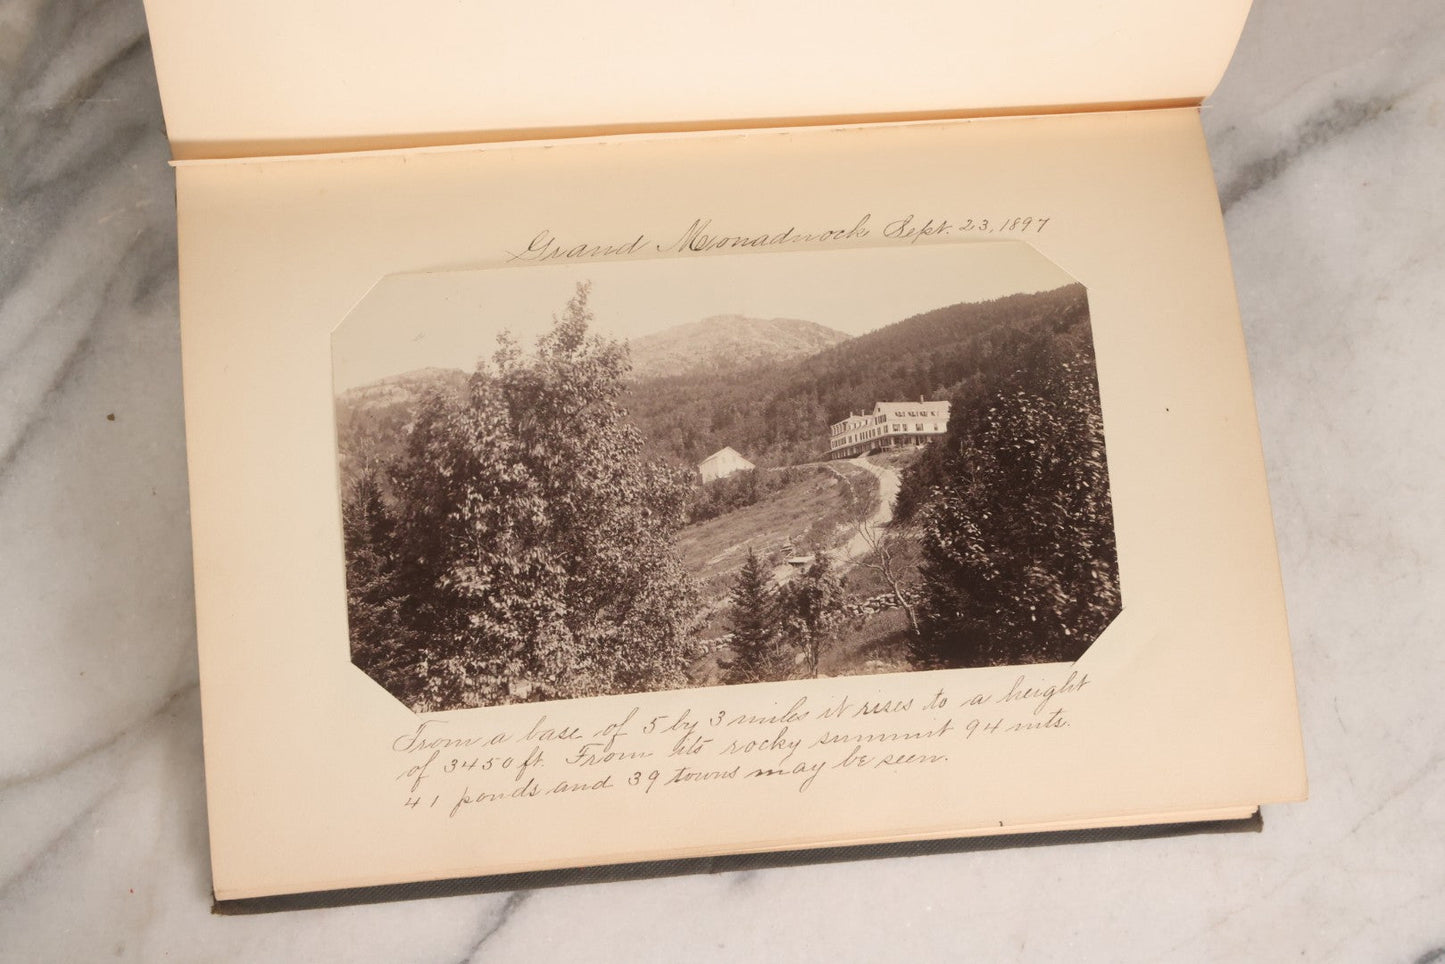 Grand Monadnock Sept. 23, 1897
From a base of 5 by 3 miles it rises to a height
of 3450 ft. From its rocky summit 94 mts.
41 ponds and 39 towns may be seen.